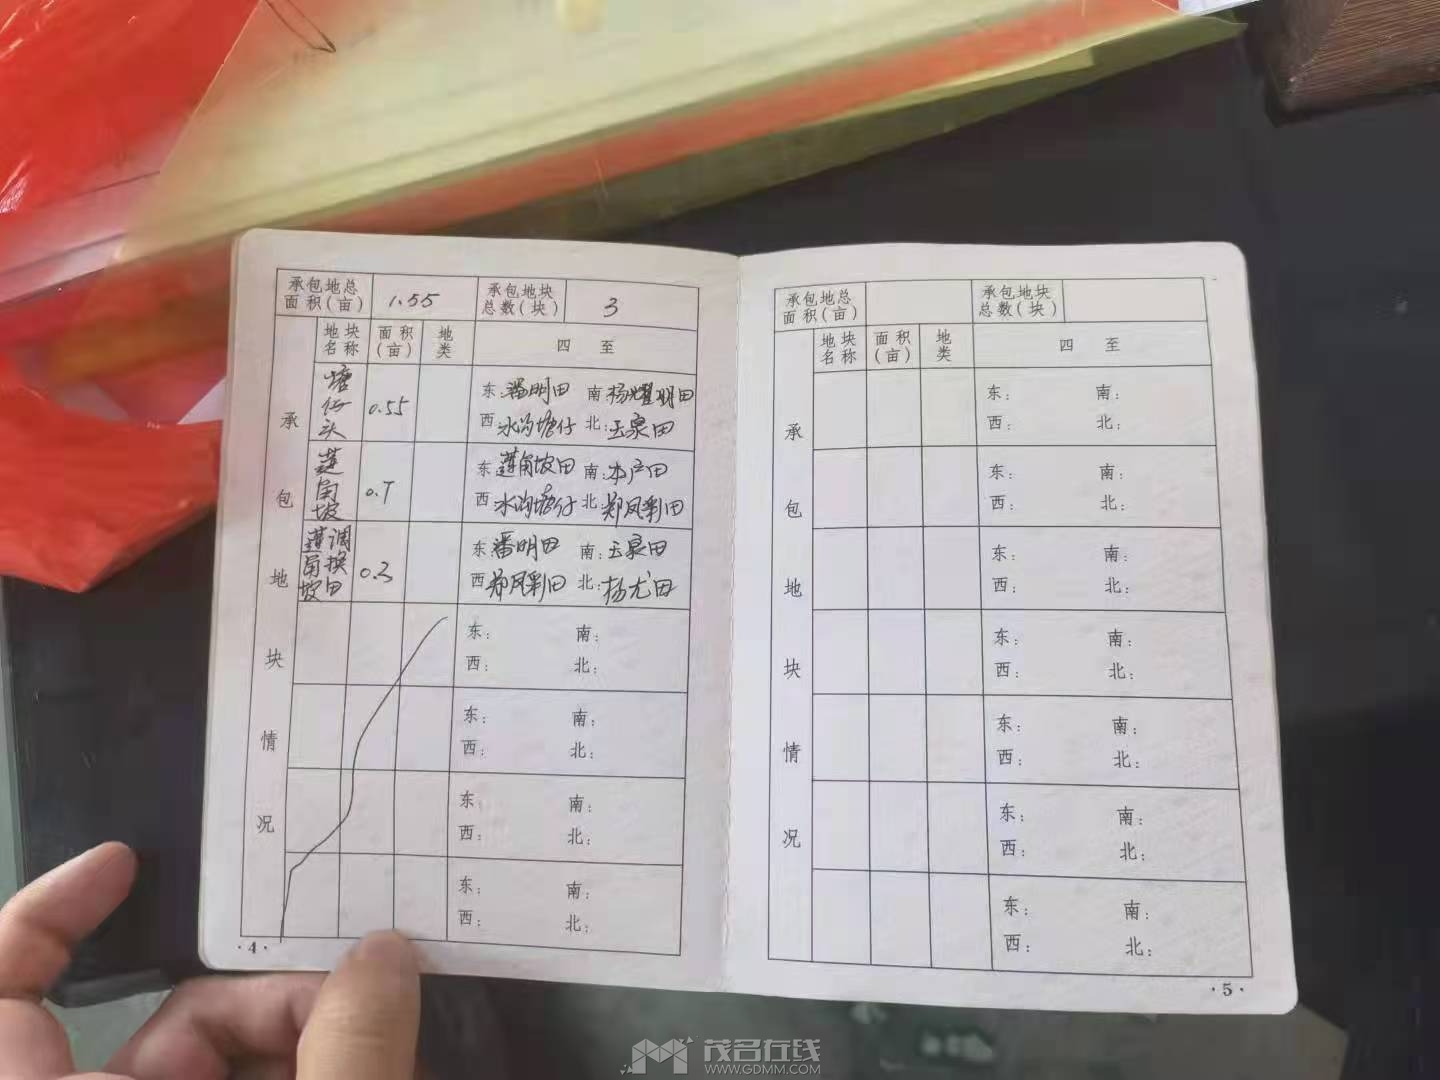 承包地总面积(亩) 1.55 承包地块总数(块) 3
地块名称 面积(亩) 地类 四至
塘仔头 0.55 东:潘明田 南:杨耀明田
西:水沟塘仔 北:玉泉田
莲角坡 0.7 东:莲角坡田 南:本户田
西:水沟塘仔 北:郑凤彩田
莲角坡调换田 0.3 东:潘明田 南:玉泉田
西:郑凤彩田 北:杨尤田
东: 南:
西: 北:
东: 南:
西: 北:
东: 南:
西: 北:
东: 南:
西: 北:
承包地块情况
·4·
承包地总面积(亩) 承包地块总数(块)
地块名称 面积(亩) 地类 四至
东: 南:
西: 北:
东: 南:
西: 北:
东: 南:
西: 北:
东: 南:
西: 北:
东: 南:
西: 北:
东: 南:
西: 北:
东: 南:
西: 北:
承包地块情况
·5·
茂名在线
WWW.GDMM.COM